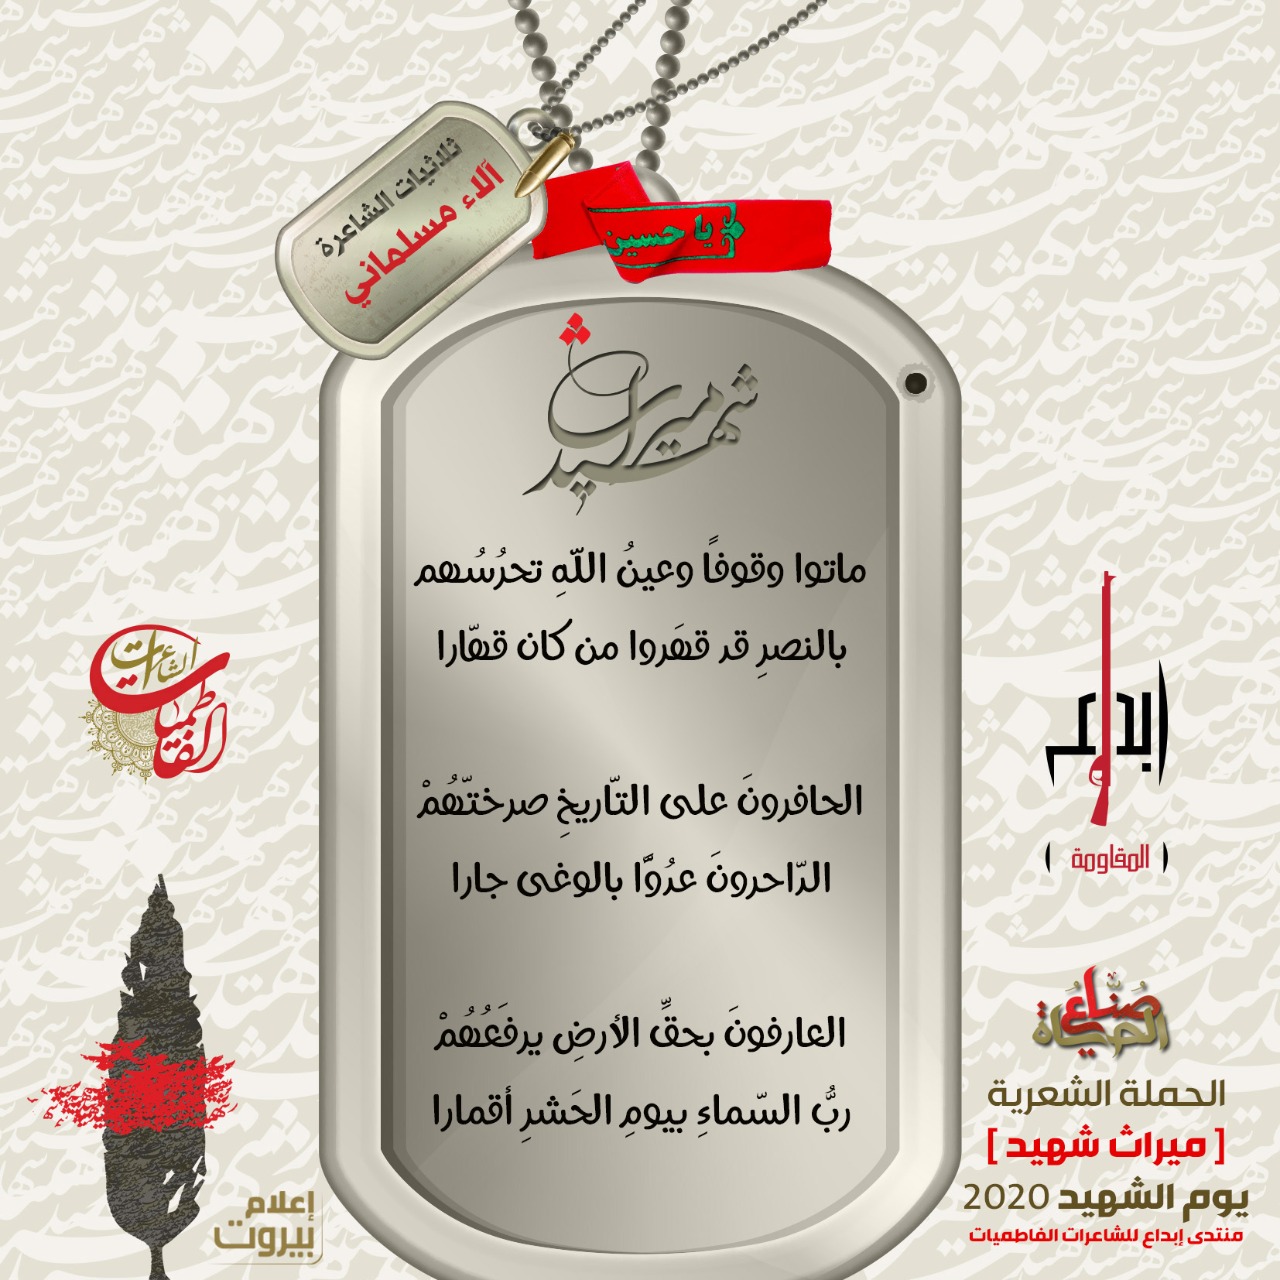 ثلاثيات الشاعرة
آلاء مسلماني
يا حسين
ميراث
شهيد
ماتوا وقوفًا وعينُ اللّهِ تحرُسُهم
بالنصرِ قد قهَروا من كان قهّارا
الحافرونَ على التّاريخِ صرختّهُمْ
الدّاحرونَ عدُوًّا بالوغى جارا
العارفونَ بحقِّ الأرضِ يرفَعُهُمْ
ربُّ السّماءِ بيومِ الحَشرِ أقمارا
الشاعرات
الفاطميات
إبداع
(المقاومة)
صُنَّاعُ
الحياة
الحملة الشعرية
[ ميراث شهيد ]
يوم الشهيد 2020
منتدى إبداع للشاعرات الفاطميات
إعلام
بيروت